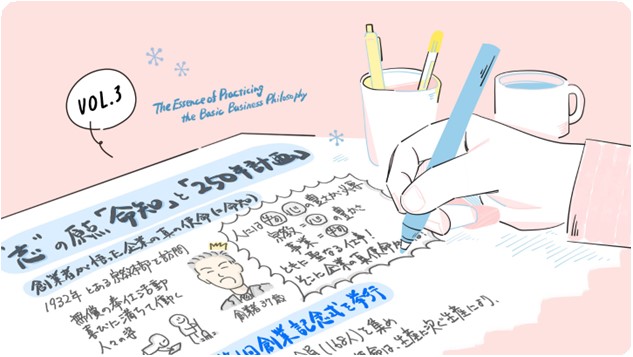 VOL.3
The Essence of Practicing
the Basic Business Philosophy
“志”の原点「命知」と「250年計画」
創業者が悟った企業の真の使命(=命知)
1932年とある宗教本部を訪問
無償の奉仕活動
喜びに満ちて働く
人々の姿
人には
の豊かさ必要
の豊かさ
事業
ともに聖なる仕事!
そこに企業の真使命が
創業者37歳
第1回創業記念式を挙行
(168人)を集め
使命は生産に次ぐ生産により、